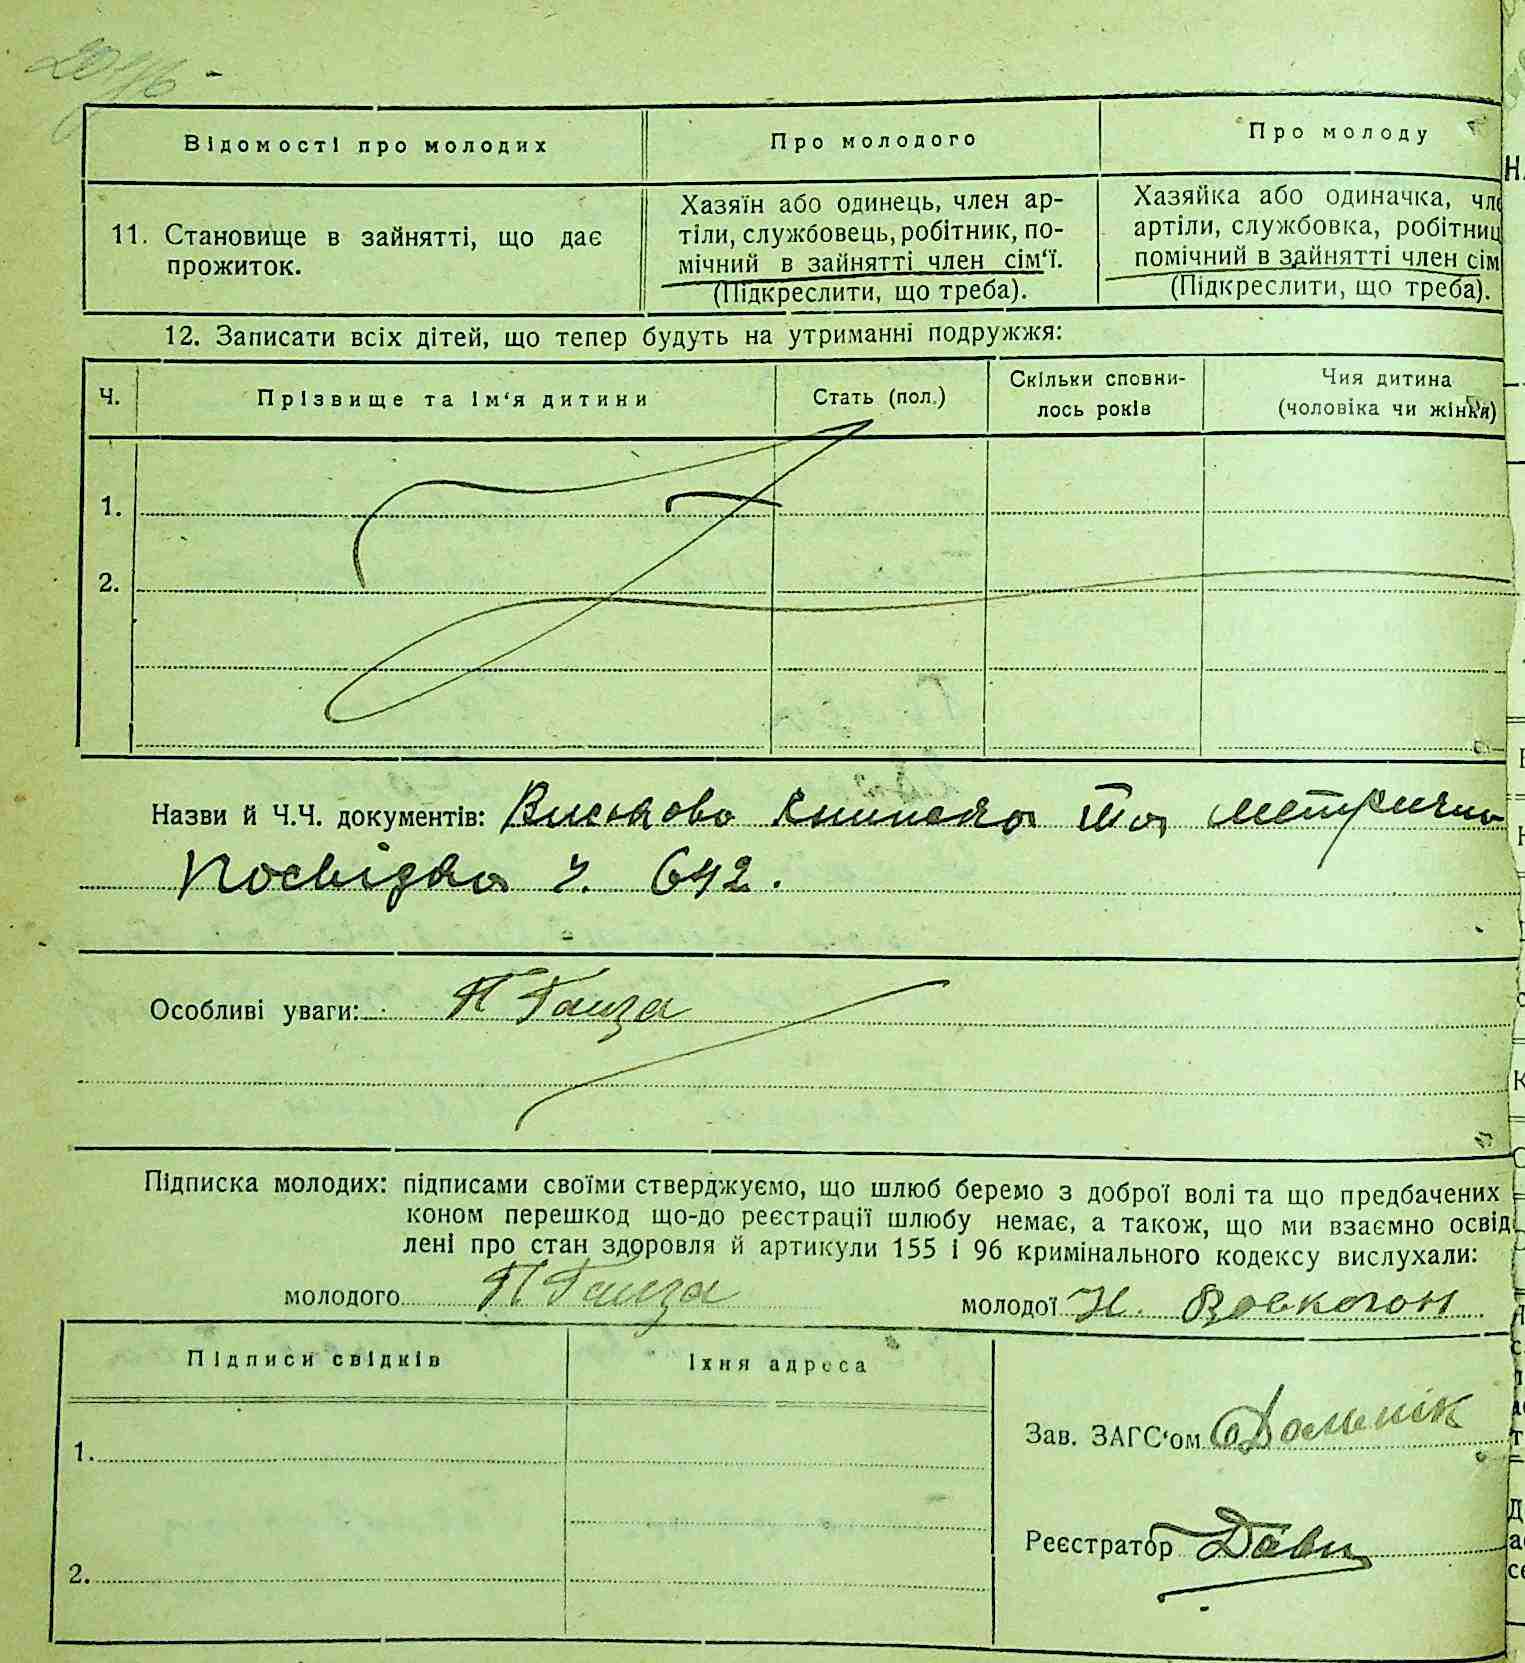 Відомості про молодих
Про молодого
Про молоду
11. Становище в зайнятті, що дає
прожиток.
Хазяїн або одинець, член ар-
тіли, службовець, робітник, по-
мічний в зайнятті член сім'ї.
(Підкреслити, що треба).
Хазяйка або одиначка, чле
артіли, службовка, робітниц
помічний в зайнятті член сім
(Підкреслити, що треба).
12. Записати всіх дітей, що тепер будуть на утриманні подружжя:
Ч.
Прізвище та ім'я дитини
Стать (пол.)
Скільки сповни-
лось років
Чия дитина
(чоловіка чи жінки)
1.
2.
Назви й Ч.Ч. документів: Виськово книжка та метрична
Посвідка ч. 642.
Особливі уваги: П Ганза
Підписка молодих: підписами своїми стверджуємо, що шлюб беремо з доброї волі та що предбачених
коном перешкод що-до реєстрації шлюбу немає, а також, що ми взаємно освід
лені про стан здоровля й артикули 155 і 96 кримінального кодексу вислухали:
молодого П Ганза молодої Н. Вовкогон
Підписи свідків
Їхня адреса
1.
2.
Зав. ЗАГС'ом
Реєстратор